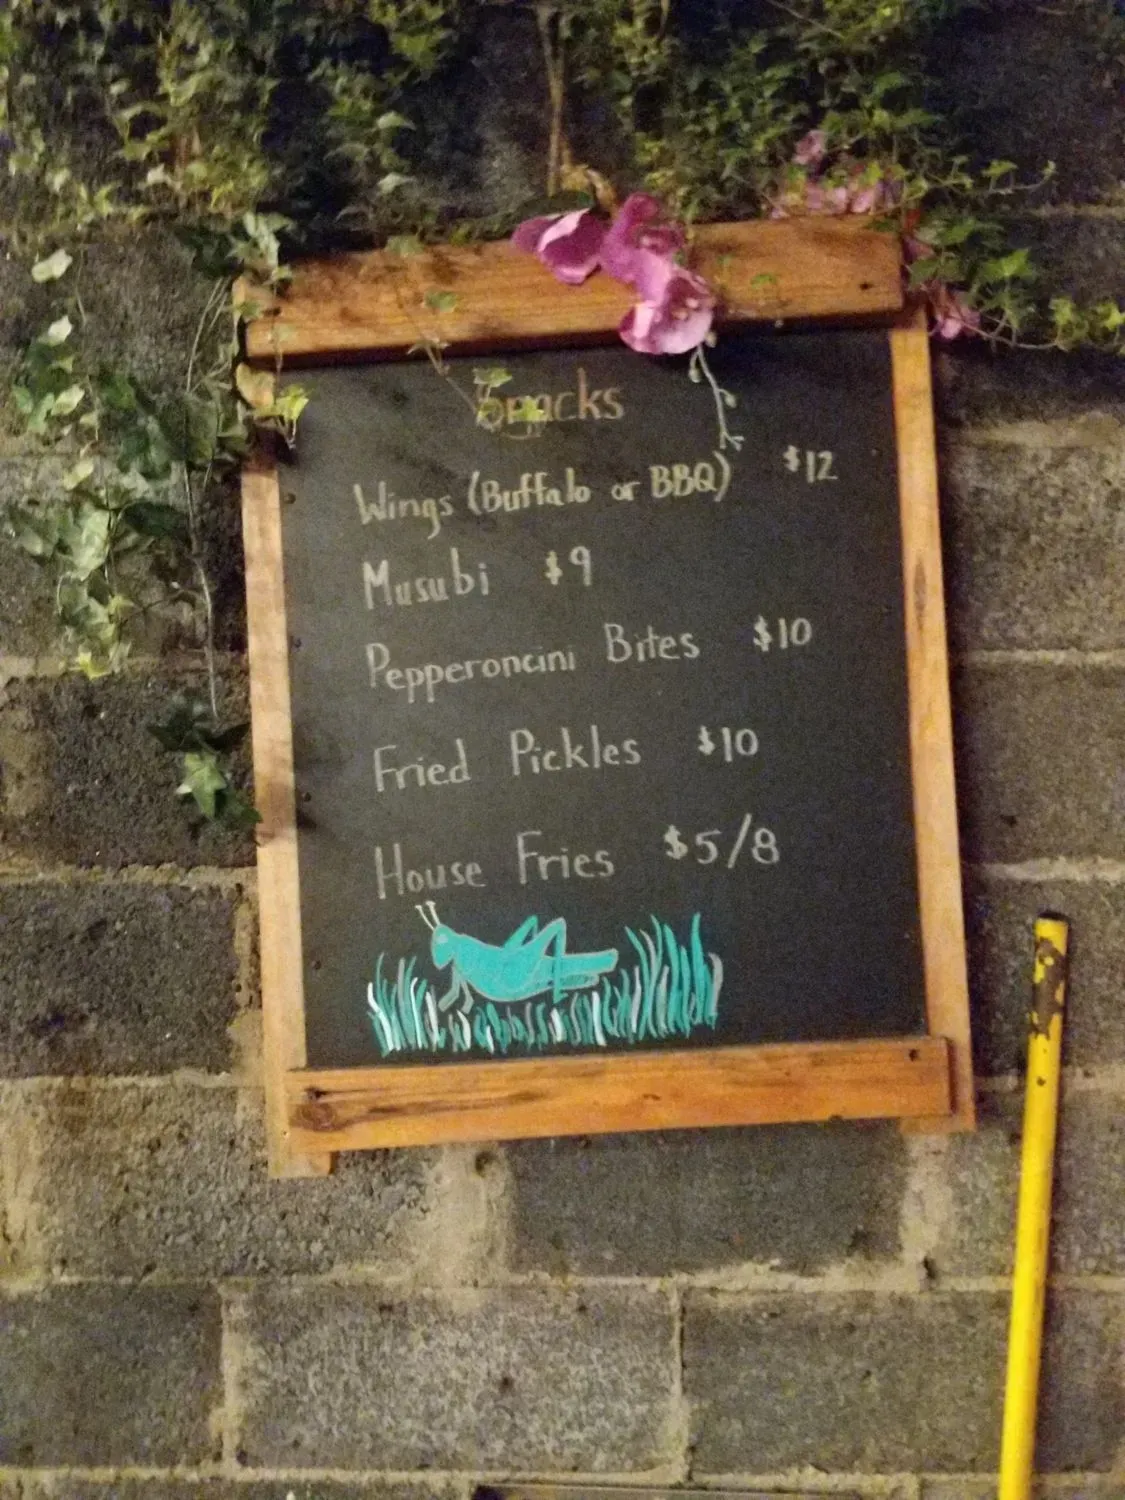 Snacks
Wings (Buffalo or BBQ) $12
Musubi $9
Pepperoncini Bites $10
Fried Pickles $10
House Fries $5/8